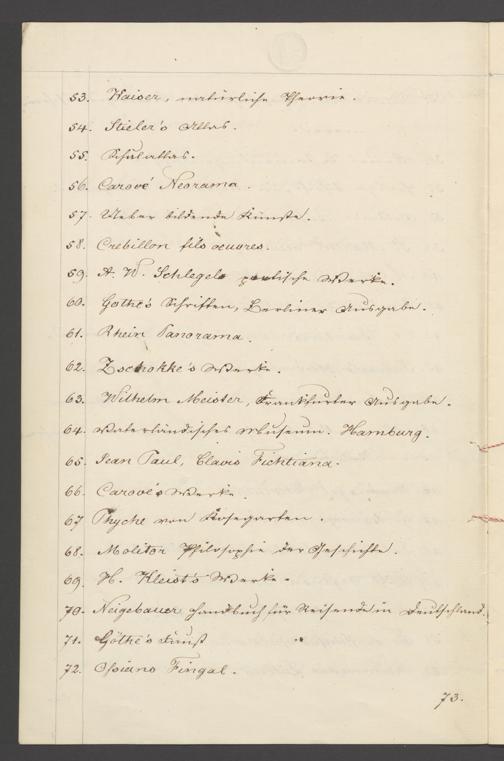 53. Kaiser, natürliche Theorie.
54. Stieler's Atlas.
55. Schulatlas.
56. Carové Neorama.
57. Ueber bildende Künste.
58. Crebillon fils oeuvres.
59. A. W. Schlegels poetische Werke.
60. Göthe's Schriften, Berliner Ausgabe.
61. Rhein Panorama.
62. Zschokke's Werke.
63. Wilhelm Meister, Frankfurter Ausgabe.
64. Vaterländisches Museum. Hamburg.
65. Jean Paul, Clavis Fichtiana.
66. Carové's Werke.
67. Psyche von Kosegarten.
68. Molitor Philosophie der Geschichte.
69. H. Kleist's Werke.
70. Neigebauer Handbuch für Reisende in Deutschland.
71. Göthe's Faust
72. Ossians Fingal.
73.